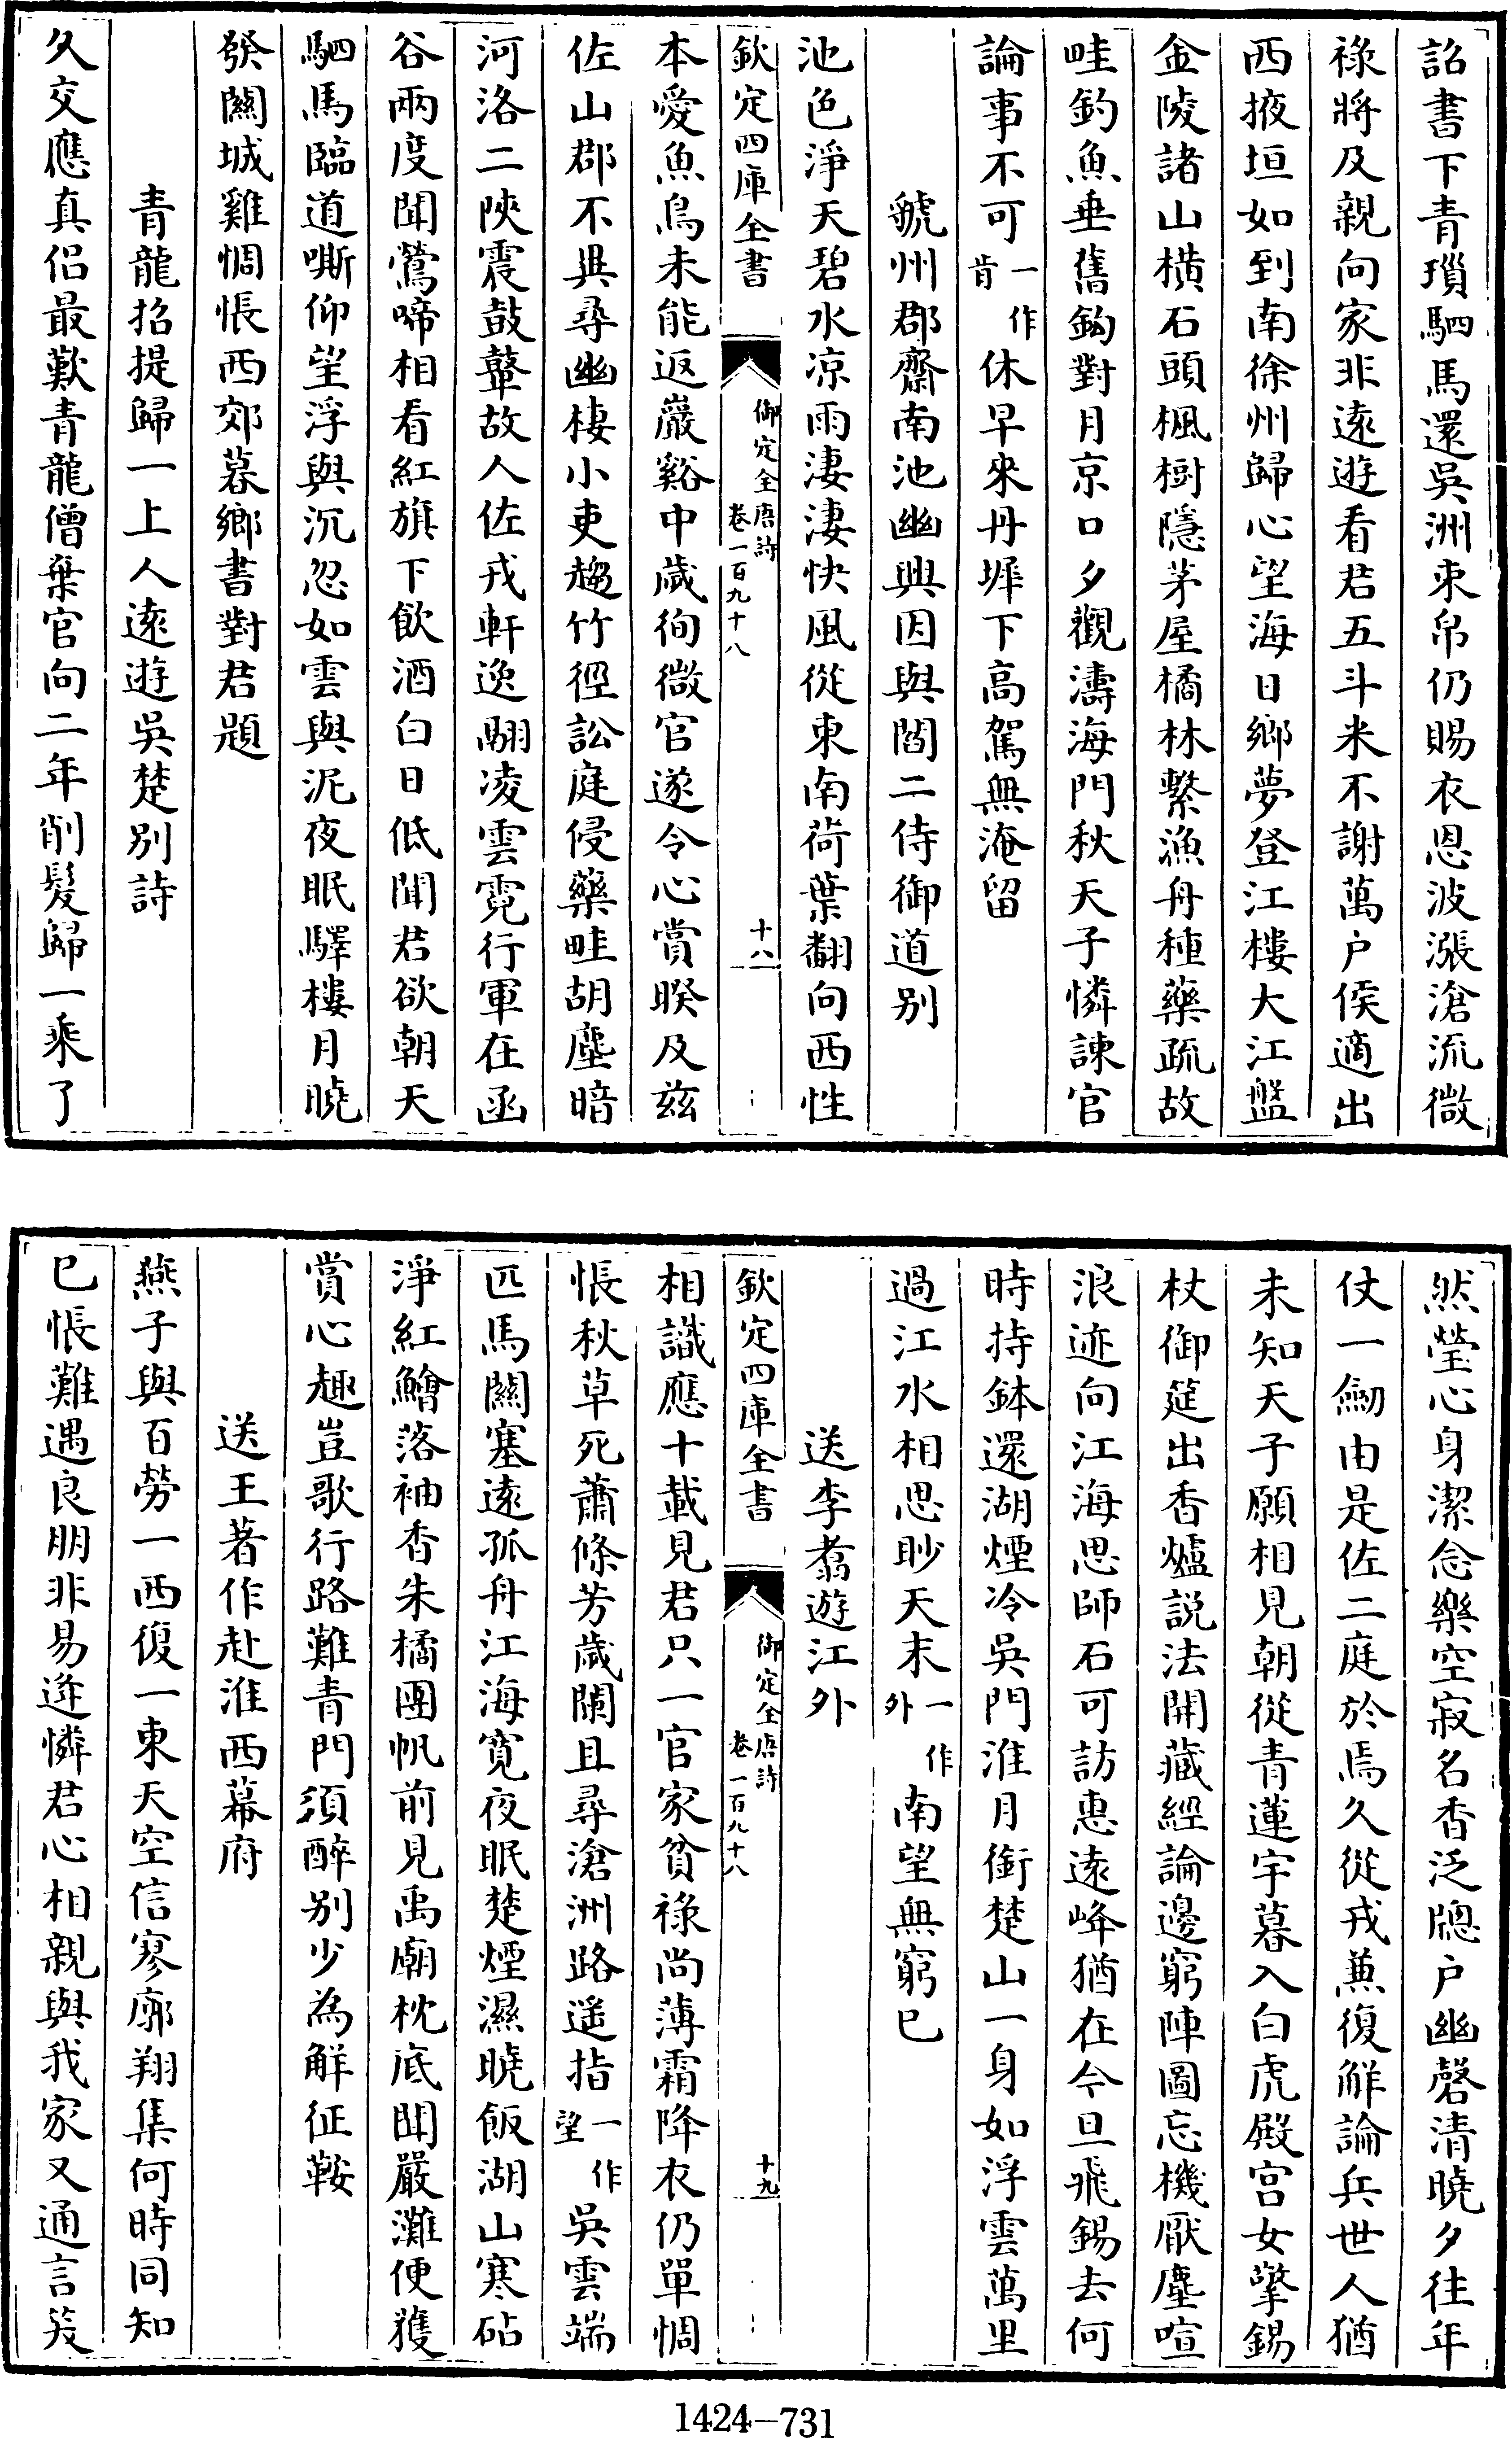 詔書下青瑣駟馬還吳洲束帛仍賜衣恩波漲滄流微
祿將及親向家非遠遊看君五斗米不謝萬户侯適出
西掖垣如到南徐州歸心望海日鄉夢登江樓大江盤
金陵諸山橫石頭楓樹隱茅屋橘林繫漁舟種藥疏故
畦釣魚垂舊鈎對月京口夕觀濤海門秋天子憐諫官
論事不可一作肯休早來丹墀下高駕無淹留
虢州郡齋南池幽興因與閻二侍御道别
池色淨天碧水凉雨淒淒快風從東南荷葉翻向西性
欽定四庫全書
御定全唐詩
卷一百九十八
十八
本愛魚鳥未能返巖谿中歲徇微官遂令心賞暌及兹
佐山郡不異尋幽棲小吏趨竹徑訟庭侵藥畦胡塵暗
河洛二陝震鼓鼙故人佐戎軒逸翮凌雲霓行軍在函
谷兩度聞鶯啼相看紅旗下飲酒白日低聞君欲朝天
駟馬臨道嘶仰望浮與沉忽如雲與泥夜眠驛樓月曉
發關城雞惆悵西郊暮鄉書對君題
青龍招提歸一上人遠遊吳楚别詩
久交應真侣最歎青龍僧棄官向二年削髮歸一乘了
然瑩心身潔念樂空寂名香泛牕户幽磬清曉夕往年
仗一劒由是佐二庭於焉久從戎兼復解論兵世人猶
未知天子願相見朝從青蓮宇暮入白虎殿宫女擎錫
杖御筵出香爐説法開藏經論邊窮陣圖忘機厭塵喧
浪迹向江海思師石可訪惠遠峰猶在今旦飛錫去何
時持鉢還湖煙冷吳門淮月銜楚山一身如浮雲萬里
過江水相思眇天末一作外南望無窮已
送李翥遊江外
欽定四庫全書
御定全唐詩
卷一百九十八
十九
相識應十載見君只一官家貧祿尚薄霜降衣仍單惆
悵秋草死蕭條芳歲闌且尋滄洲路遥指一作望吳雲端
匹馬關塞遠孤舟江海寬夜眠楚煙濕曉飯湖山寒砧
淨紅鱠落袖香朱橘團帆前見禹廟枕底聞嚴灘便獲
賞心趣豈歌行路難青門須醉别少為解征鞍
送王著作赴淮西幕府
燕子與百勞一西復一東天空信寥廓翔集何時同知
已悵難遇良朋非易逢憐君心相親與我家又通言笑
1424-731